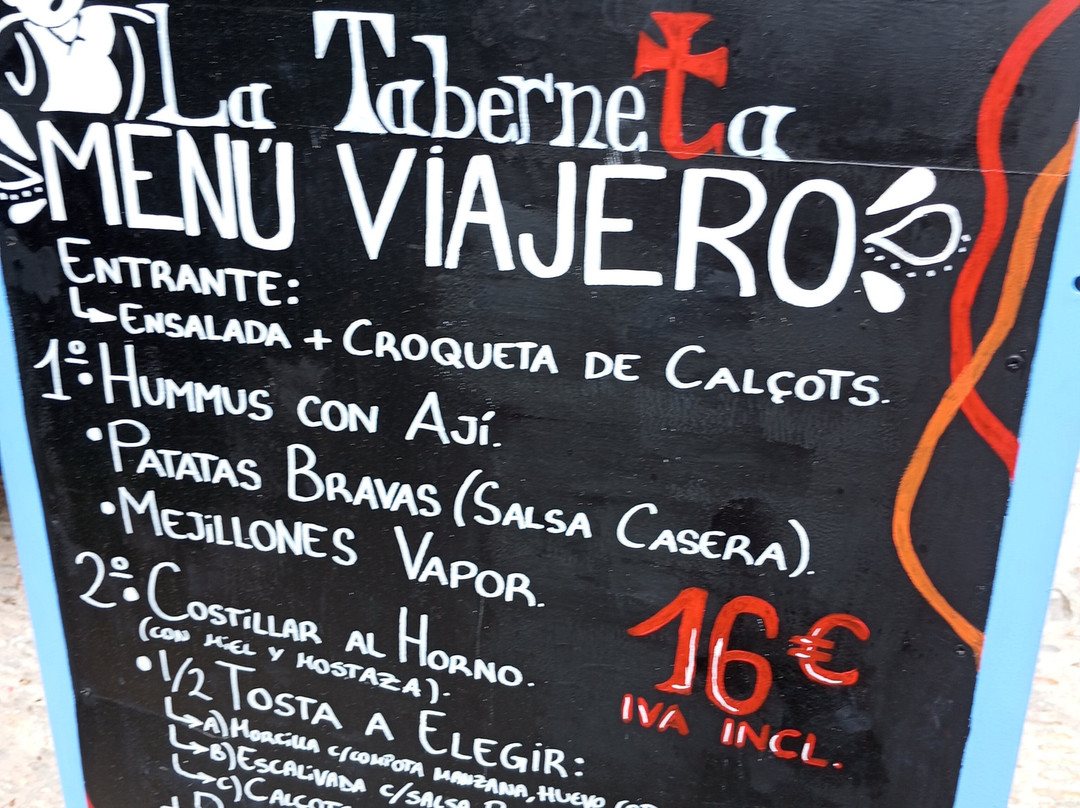 La Taberneta
MENÚ VIAJERO
ENTRANTE:
ENSALADA + CROQUETA DE CALÇOTS.
1º: HUMMUS CON AJÍ.
• PATATAS BRAVAS (SALSA CASERA).
• MEJILLONES VAPOR.
2º: COSTILLAR AL HORNO.
(CON MIEL Y MOSTAZA).
• 1/2 TOSTA A ELEGIR:
A) MORCILLA C/COMPOTA MANZANA, HUEVO
B) ESCALIVADA C/SALSA
C) CALÇOTS
16€
IVA INCL.